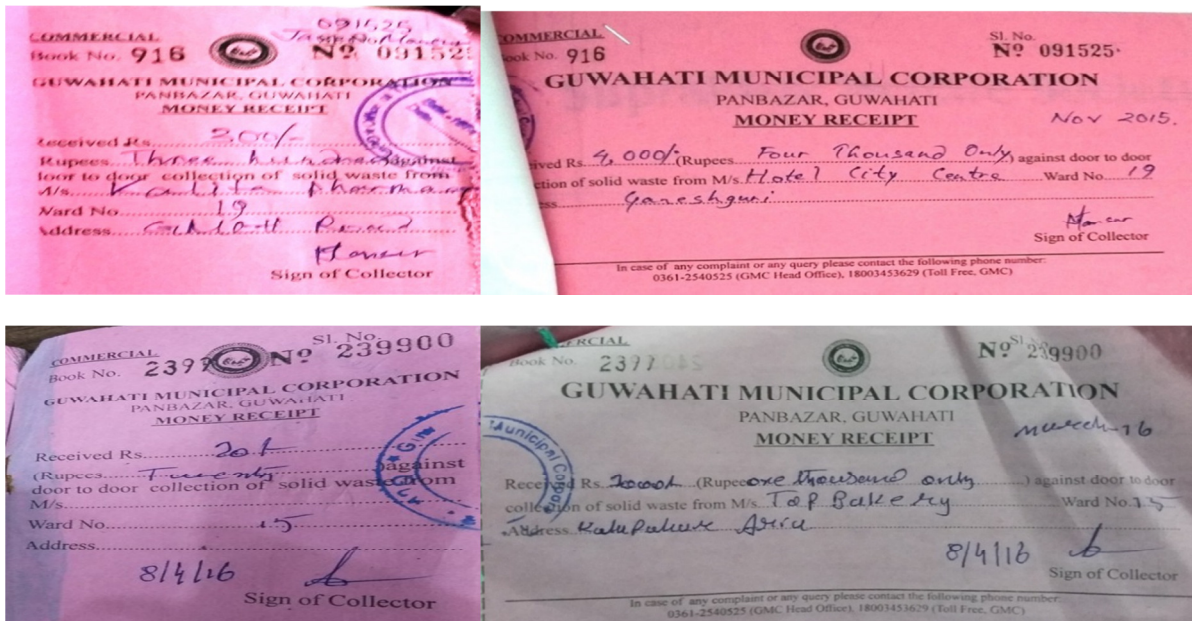 091525
COMMERCIAL
Book No. 916 No 09152
GUWAHATI MUNICIPAL CORPORATION
PANBAZAR, GUWAHATI
MONEY RECEIPT
Received Rs. 300/-
Rupees Three hundred against
door to door collection of solid waste from
M/s.
Ward No. 19
Address
Sign of Collector
COMMERCIAL Sl. No.
ook No. 916 No 091525
GUWAHATI MUNICIPAL CORPORATION
PANBAZAR, GUWAHATI
MONEY RECEIPT Nov 2015.
ived Rs. 4,000/- (Rupees Four Thousand Only) against door to door
ction of solid waste from M/s. Hotel City Centre Ward No. 19
ss Ganeshguri
Sign of Collector
In case of any complaint or any query please contact the following phone number:
0361-2540525 (GMC Head Office), 18003453629 (Toll Free, GMC)
COMMERCIAL Sl. No.
Book No. 2399 No 239900
GUWAHATI MUNICIPAL CORPORATION
PANBAZAR, GUWAHATI
MONEY RECEIPT
Received Rs. 20/-
(Rupees Twenty) against
door to door collection of solid waste from
M/s.
Ward No. 15
Address
8/4/16
Sign of Collector
ERCIAL Sl.
Book No. No 239900
GUWAHATI MUNICIPAL CORPORATION
PANBAZAR, GUWAHATI
MONEY RECEIPT March-16
Received Rs. (Rupees one thousand only) against door to door
collection of solid waste from M/s. Top Bakery Ward No. 15
Address
8/4/16
Sign of Collector
In case of any complaint or any query please contact the following phone number:
0361-2540525 (GMC Head Office), 18003453629 (Toll Free, GMC)